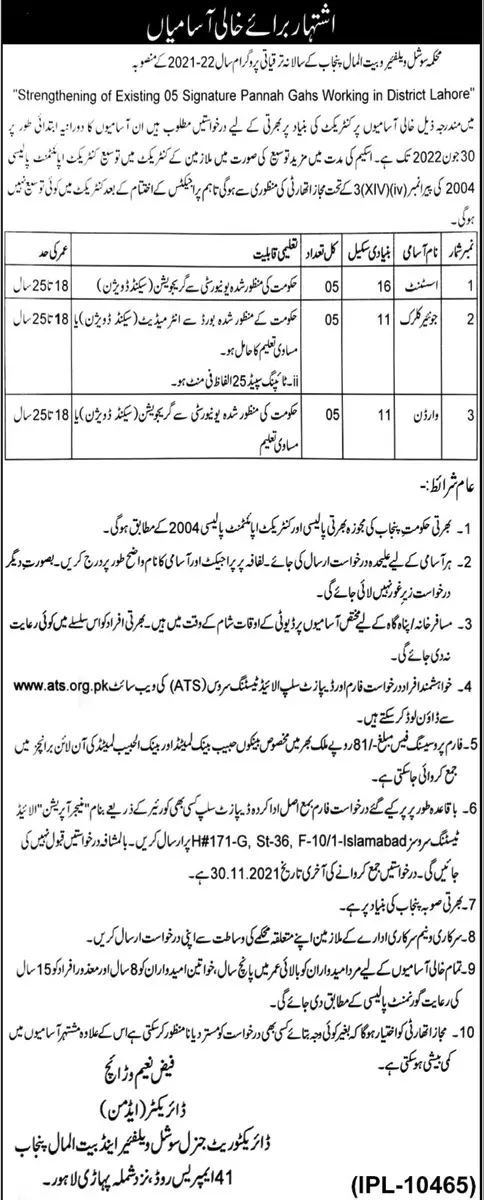 اشتہار برائے خالی آسامیاں
محکمہ سوشل ویلفیئر و بیت المال پنجاب کے سالانہ ترقیاتی پروگرام سال 22-2021 کے منصوبہ
"Strengthening of Existing 05 Signature Pannah Gahs Working in District Lahore"
میں مندرجہ ذیل خالی آسامیوں پر کنٹریکٹ کی بنیاد پر بھرتی کے لیے درخواستیں مطلوب ہیں ان آسامیوں کا دورانیہ ابتدائی طور پر
30 جون 2022 تک ہے۔ اسکیم کی مدت میں مزید توسیع کی صورت میں ملازمین کے کنٹریکٹ میں توسیع کنٹریکٹ اپائنٹمنٹ پالیسی
2004 کی پیرا نمبر (iv)(XIV)3 کے تحت مجاز اتھارٹی کی منظوری سے ہوگی تاہم پراجیکٹس کے اختتام کے بعد کنٹریکٹ میں کوئی توسیع نہیں
ہوگی۔
نمبر شمار نام آسامی بنیادی سکیل کل تعداد تعلیمی قابلیت عمر کی حد
1 اسسٹنٹ 16 05 حکومت کی منظور شدہ یونیورسٹی سے گریجویشن (سیکنڈ ڈویژن) 18 تا 25 سال
2 جونیئر کلرک 11 05 حکومت کے منظور شدہ بورڈ سے انٹرمیڈیٹ (سیکنڈ ڈویژن) یا 18 تا 25 سال
مساوی تعلیم کا حامل ہو۔
ii۔ ٹائپنگ سپیڈ 25 الفاظ فی منٹ ہو۔
3 وارڈن 11 05 حکومت کی منظور شدہ یونیورسٹی سے گریجویشن (سیکنڈ ڈویژن) یا 18 تا 25 سال
مساوی تعلیم
عام شرائط:-
1۔ بھرتی حکومت پنجاب کی مجوزہ بھرتی پالیسی اور کنٹریکٹ اپائنٹمنٹ پالیسی 2004 کے مطابق ہوگی۔
2۔ ہر آسامی کے لیے علیحدہ درخواست ارسال کی جائے۔ لفافہ پر پراجیکٹ اور آسامی کا نام واضح طور پر درج کریں۔ بصورت دیگر
درخواست زیر غور نہیں لائی جائے گی۔
3۔ مسافر خانہ/پناہ گاہ کے لیے مختص آسامیوں پر ڈیوٹی کے اوقات شام کے وقت میں ہیں۔ بھرتی افراد کو اس سلسلے میں کوئی رعایت
نہ دی جائے گی۔
4۔ خواہشمند افراد درخواست فارم اور ڈیپازٹ سلپ الائیڈ ٹیسٹنگ سروس (ATS) کی ویب سائٹ www.ats.org.pk
سے ڈاؤن لوڈ کر سکتے ہیں۔
5۔ فارم پروسیسنگ فیس مبلغ -/81 روپے ملک بھر میں مخصوص بینکوں حبیب بینک لمیٹڈ اور بینک الحبیب لمیٹڈ کی آن لائن برانچز میں
جمع کروائی جاسکتی ہے۔
6۔ باقاعدہ طور پر پر کیے گئے درخواست فارم بمع اصل ادا کردہ ڈیپازٹ سلپ کسی بھی کورئیر کے ذریعے بنام "منیجر آپریشن" الائیڈ
ٹیسٹنگ سروسز H#171-G, St-36, F-10/1-Islamabad پر ارسال کریں۔ بالمشافہ درخواستیں قبول نہیں کی
جائیں گی۔ درخواستیں جمع کروانے کی آخری تاریخ 30.11.2021 ہے۔
7۔ بھرتی صوبہ پنجاب کی بنیاد پر ہے۔
8۔ سرکاری و نیم سرکاری ادارے کے ملازمین اپنے متعلقہ محکمے کی وساطت سے اپنی درخواست ارسال کریں۔
9۔ تمام خالی آسامیوں کے لیے مرد امیدواران کو بالائی عمر میں پانچ سال، خواتین امیدواران کو 8 سال اور معذور افراد کو 15 سال
کی رعایت گورنمنٹ پالیسی کے مطابق دی جائے گی۔
10۔ مجاز اتھارٹی کو اختیار ہوگا کہ بغیر کوئی وجہ بتائے کسی بھی درخواست کو مسترد یا نامنظور کر سکتی ہے اس کے علاوہ مشتہر آسامیوں میں
کمی بیشی ہو سکتی ہے۔
فیض نعیم وڑائچ
ڈائریکٹر (ایڈمن)
ڈائریکٹوریٹ جنرل سوشل ویلفیئر اینڈ بیت المال پنجاب
41 ایمپریس روڈ، نزد شملہ پہاڑی لاہور۔
(IPL-10465)